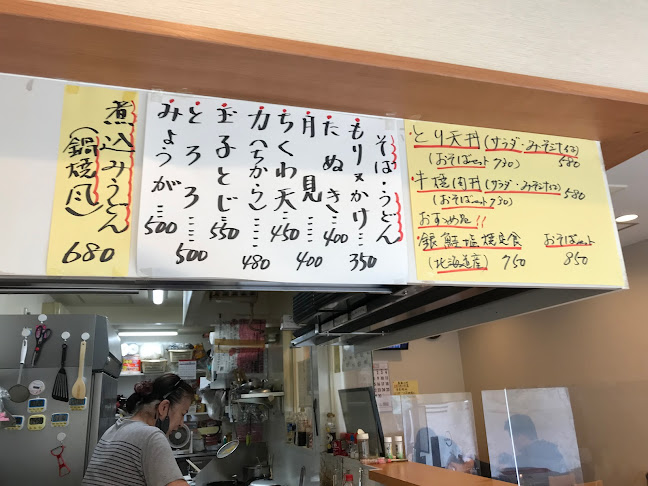 そば・うどん
もり又かけ……350
たぬき……400
月見……400
ちくわ天……450
力(ちから)……480
玉子とじ……550
とろろ……500
みょうが……500
煮込みうどん
(鍋焼風)
680
とり天丼(サラダ・みそ汁付)
580
(おそばセット730)
牛焼肉丼(サラダ・みそ汁付)
580
(おそばセット730)
おすすめ品!!
銀鮭塩焼定食
(北海道産) 750
おそばセット
850